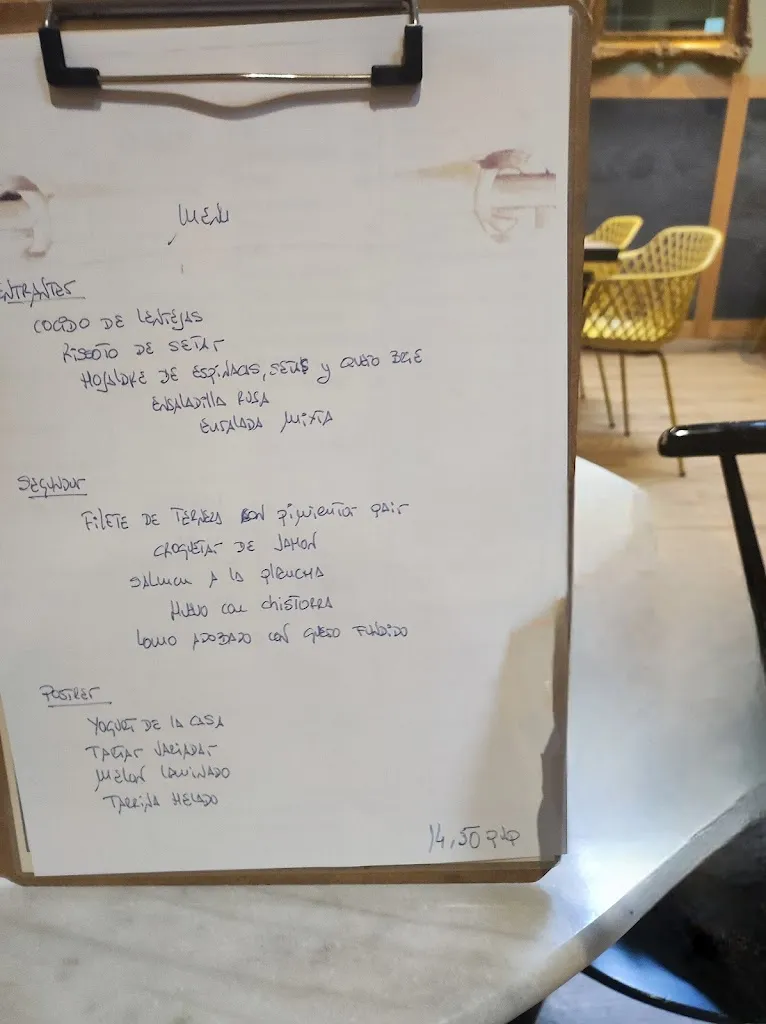 MENU
ENTRANTES
COCIDO DE LENTEJAS
RISSOTO DE SETAS
HOJALDRE DE ESPINACAS, SETAS Y QUESO BRIE
ENSALADILLA RUSA
ENSALADA MIXTA
SEGUNDOS
FILETE DE TERNERA CON PIMIENTOS PAIS
CROQUETAS DE JAMON
SALMON A LA PLANCHA
HUEVO CON CHISTORRA
LOMO ADOBADO CON QUESO FUNDIDO
POSTRES
YOGURT DE LA CASA
TARTAS VARIADAS
MELON LAMINADO
TARRINA HELADO
14,50